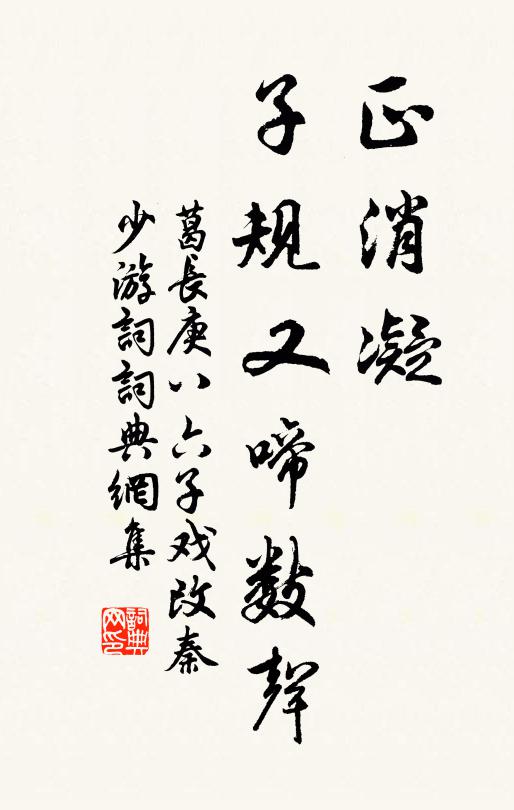 正消凝
子規又啼数聲
葛長庚八六子戏改秦
少游詞詞典網集
詞典
网印